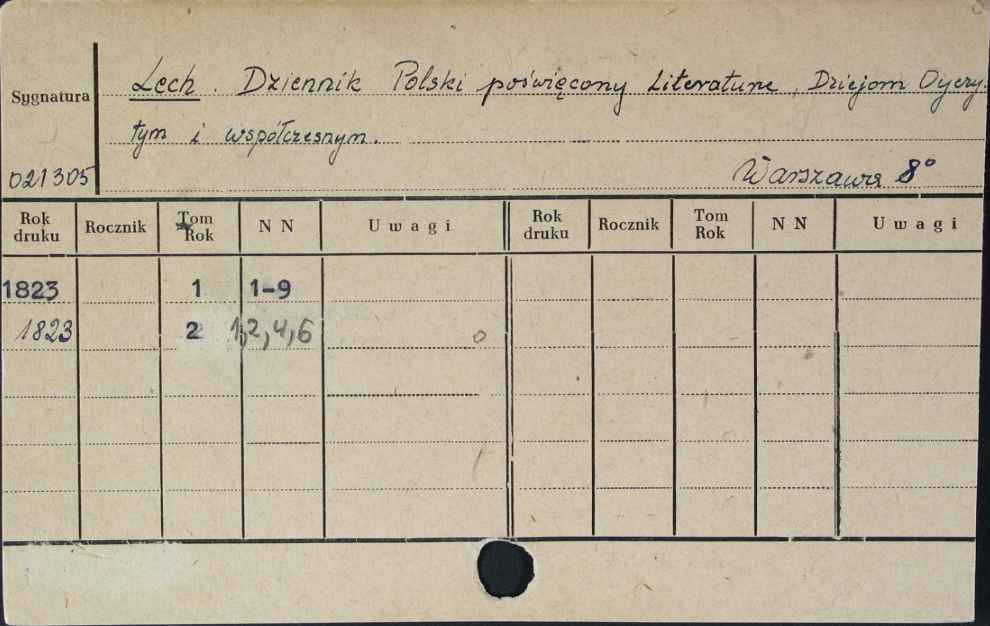 Lech. Dziennik Polski poświęcony Literaturze, Dziejom Oyczy-
Sygnatura
tym i współczesnym.
021305
Warszawa 8°
Rok druku Rocznik Tom Rok N N Uwagi Rok druku Rocznik Tom Rok N N Uwagi
1823 1 1-9
1823 2 1,2,4,6